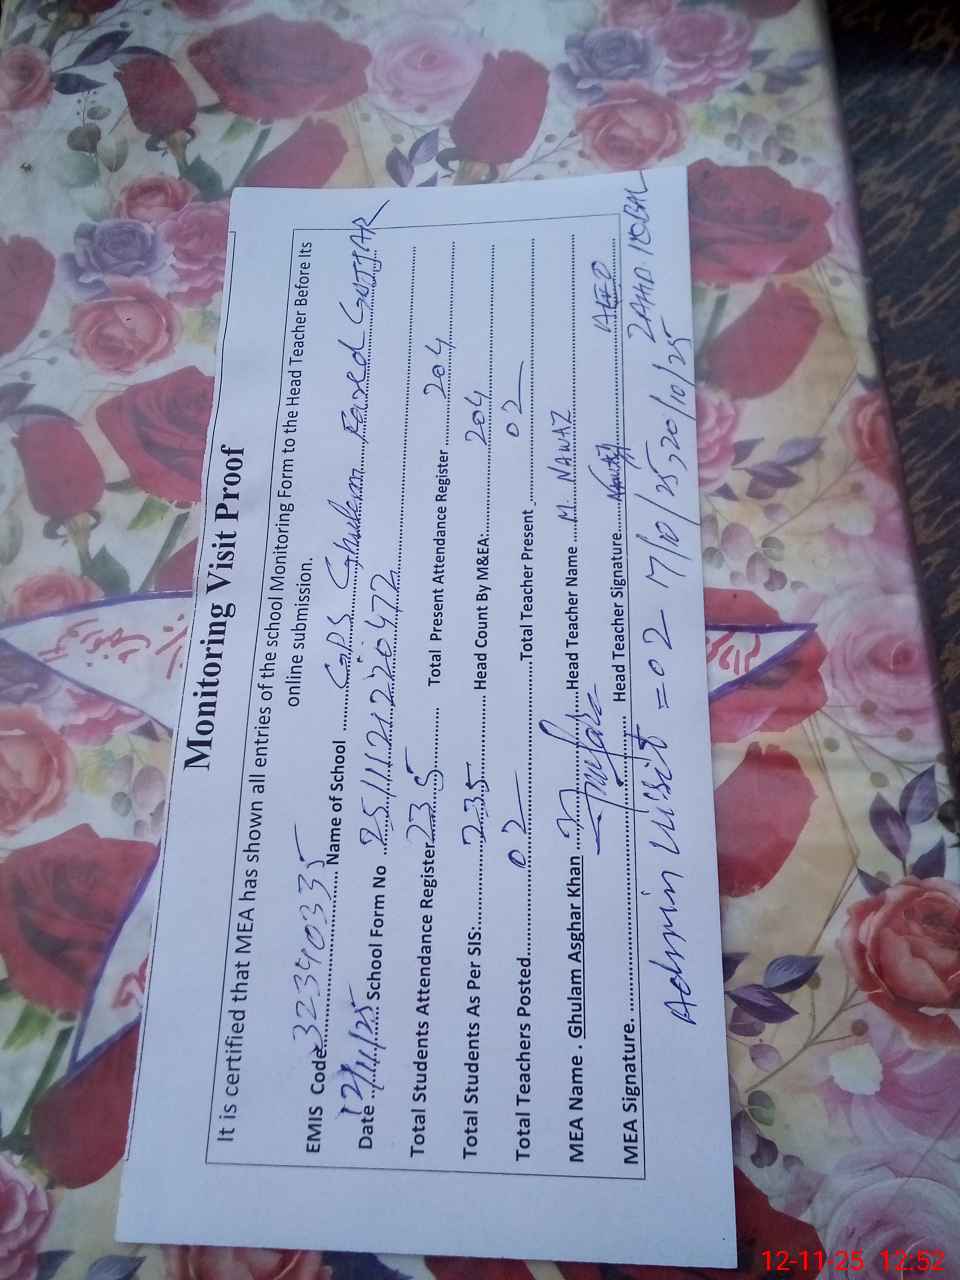 Monitoring Visit Proof
It is certified that MEA has shown all entries of the school Monitoring Form to the Head Teacher Before Its
online submission.
EMIS Code 32340335 Name of School GPS Ghulam Fareed GUJJAR
Date 12/11/25 School Form No 2511121220472
Total Students Attendance Register 235 Total Present Attendance Register 204
Total Students As Per SIS: 235 Head Count By M&EA: 204
Total Teachers Posted 02 Total Teacher Present 02
MEA Name . Ghulam Asghar Khan Head Teacher Name M. NAWAZ
MEA Signature. Head Teacher Signature AEO
Admin visit = 02 7/10/25, 20/10/25 ZAHID IQBAL
12-11-25 12:52